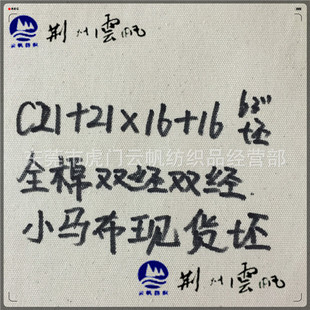 云帆纺织 荆州雲帆
C21+21×16+16 63"坯
东莞市虎门云帆纺织品经营部
全棉双经双经
小马布现货坯
云帆纺织 荆州雲帆